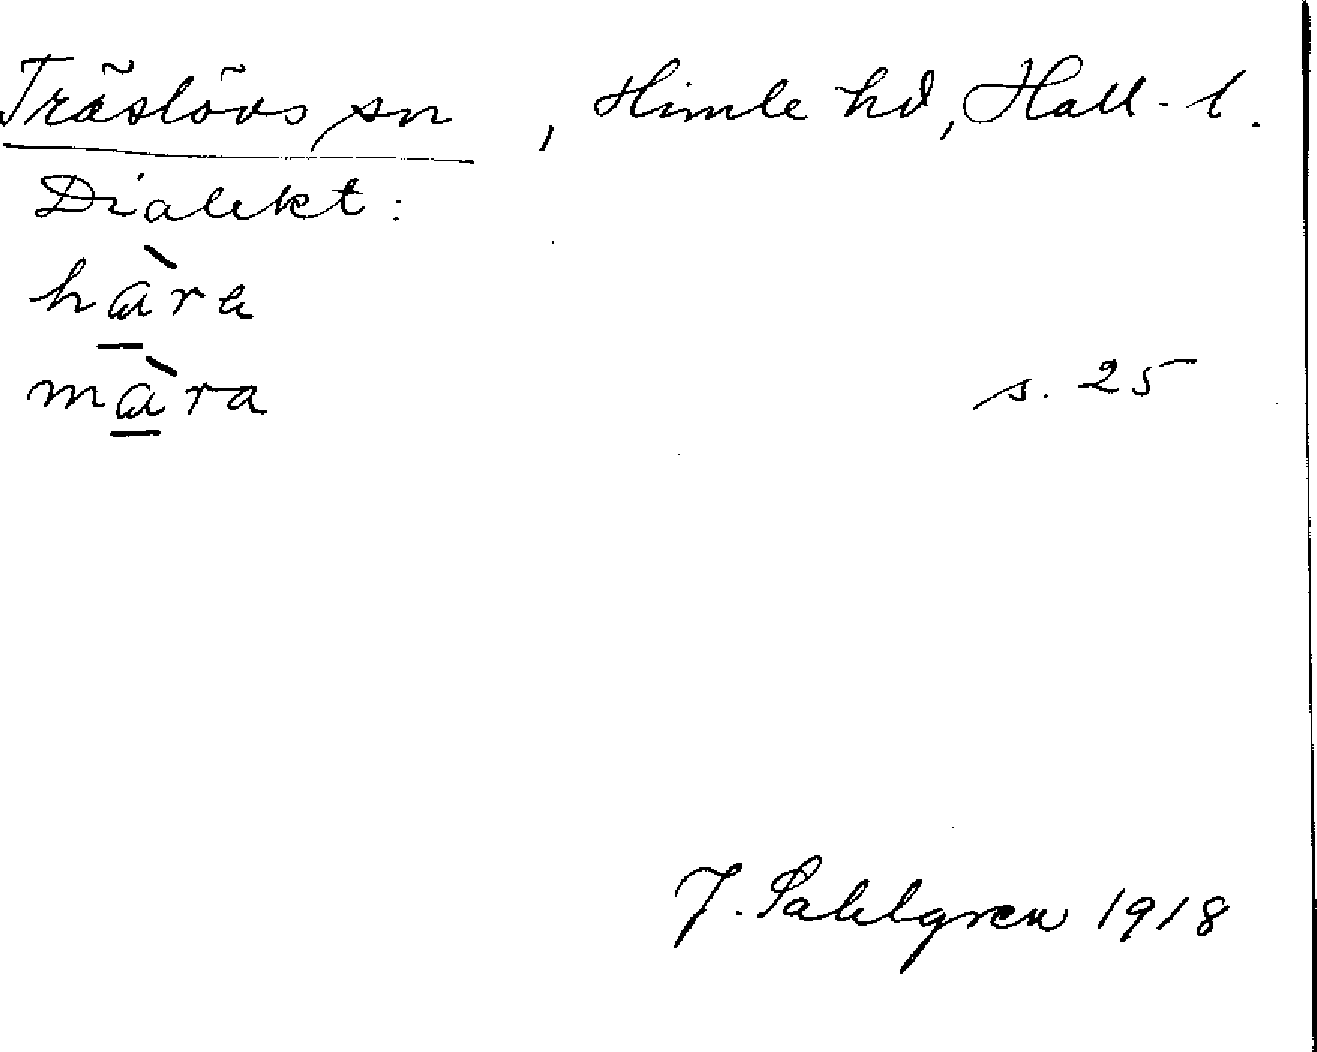 Träslövs sn, Himle hd, Hall. l.
Dialekt:
hàra
màra s. 25
J. Sahlgren 1918